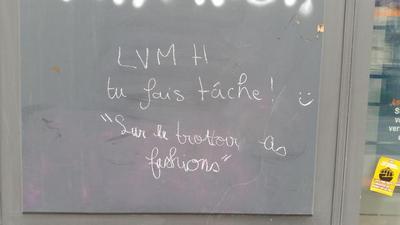 LVMH
tu fais tâche !
"Sur le trottoir
fashions"